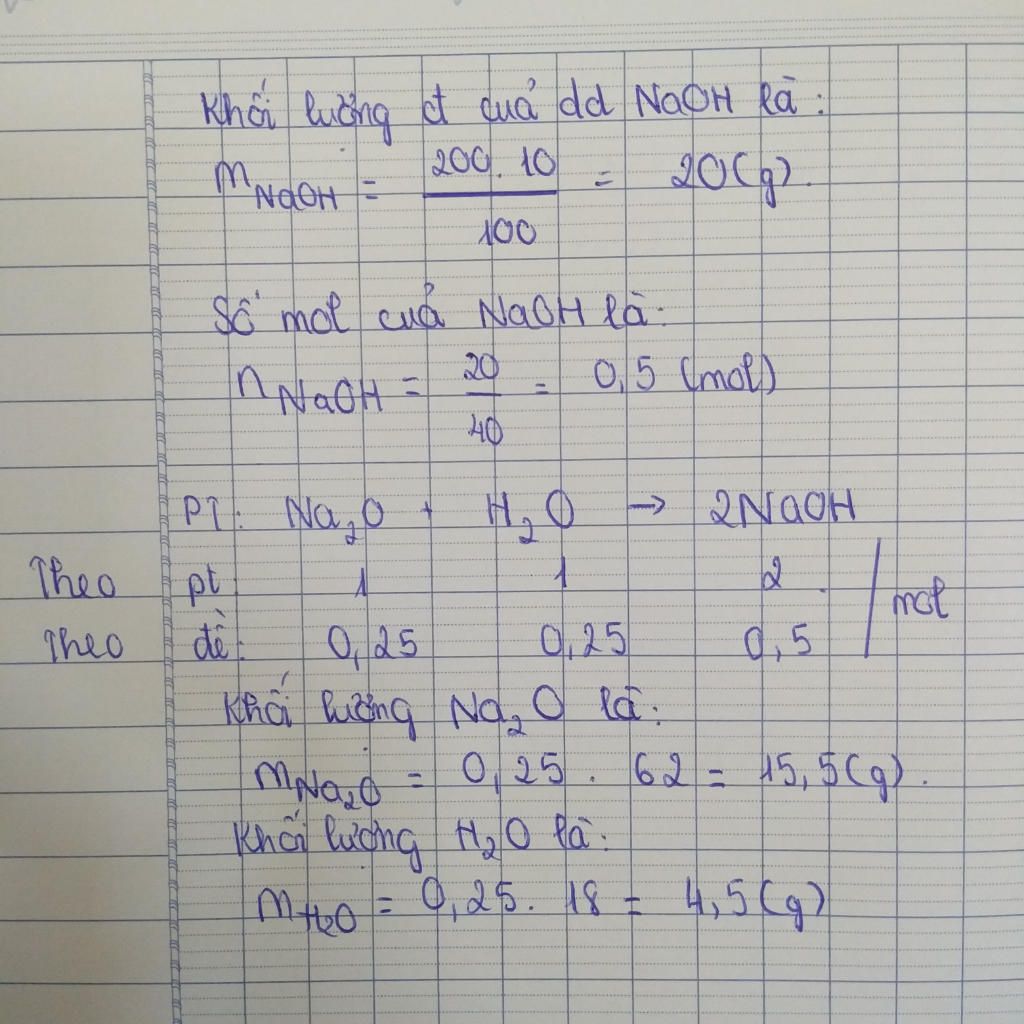 Khối lượng ct của dd NaOH là:
m NaOH = 200. 10 / 100 = 20(g).
Số mol của NaOH là:
n NaOH = 20 / 40 = 0,5 (mol)
PT: Na₂O + H₂O → 2NaOH
Theo pt 1 1 2
Theo đề: 0,25 0,25 0,5 / mol
Khối lượng Na₂O là:
m Na₂O = 0,25 . 62 = 15,5(g).
Khối lượng H₂O là:
m H₂O = 0,25. 18 = 4,5(g)